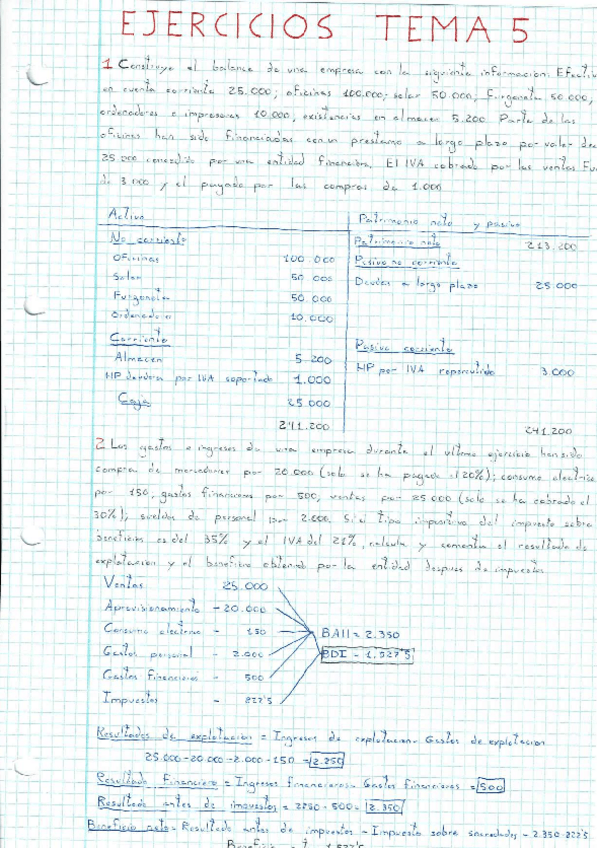 EJERCICIOS TEMA 5
1 Construye el balance de una empresa con la siguiente información: Efectiv
en cuenta corriente 25.000; oficinas 100.000; solar 50.000; furgoneta 50.000;
ordenadores e impresoras 10.000; existencias en almacen 5.200 Parte de las
oficinas han sido financiadas con un prestamo a largo plazo por valor de
25.000 concedido por una entidad financiera. El IVA cobrado por las ventas Fu
de 3.000 y el pagado por las compras de 1.000
Activo Patrimonio neto y pasivo
No corriente Patrimonio neto 213.200
Oficinas 100.000 Pasivo no corriente
Solar 50.000 Deudas a largo plazo 25.000
Furgoneta 50.000
Ordenador 10.000
Corriente Pasivo corriente
Almacen 5.200 HP por IVA repercutido 3.000
HP deudora por IVA soportado 1.000
Caja 25.000
241.200 241.200
2 Los gastos e ingresos de una empresa durante el ultimo ejercicio han sido
compra de mercaderias por 20.000 (solo se ha pagado 20%); consumo electrico
por 150, gastos financieros por 500, ventas por 25.000 (solo se ha cobrado el
30%); sueldos de personal por 2.000. Si el tipo impositivo del impuesto sobre
beneficios es del 35% y el IVA del 21%, calcula y comenta el resultado de
explotacion y el beneficio obtenido por la entidad despues de impuestos
Ventas 25.000
Aprovisionamiento - 20.000
Consumo electrico - 150 BAII = 2.350
Gastos personal - 2.000 BDI - 1.527'5
Gastos financieros - 500
Impuestos - 822'5
Resultados de explotacion = Ingresos de explotacion - Gastos de explotacion
25.000-20.000-2.000-150 = 2.850
Resultado Financiero = Ingresos financieros - Gastos financieros = 500
Resultado antes de impuestos = 2850 - 500 = 2.350
Beneficio neto = Resultado antes de impuestos - Impuesto sobre sociedades - 2.350-822'5